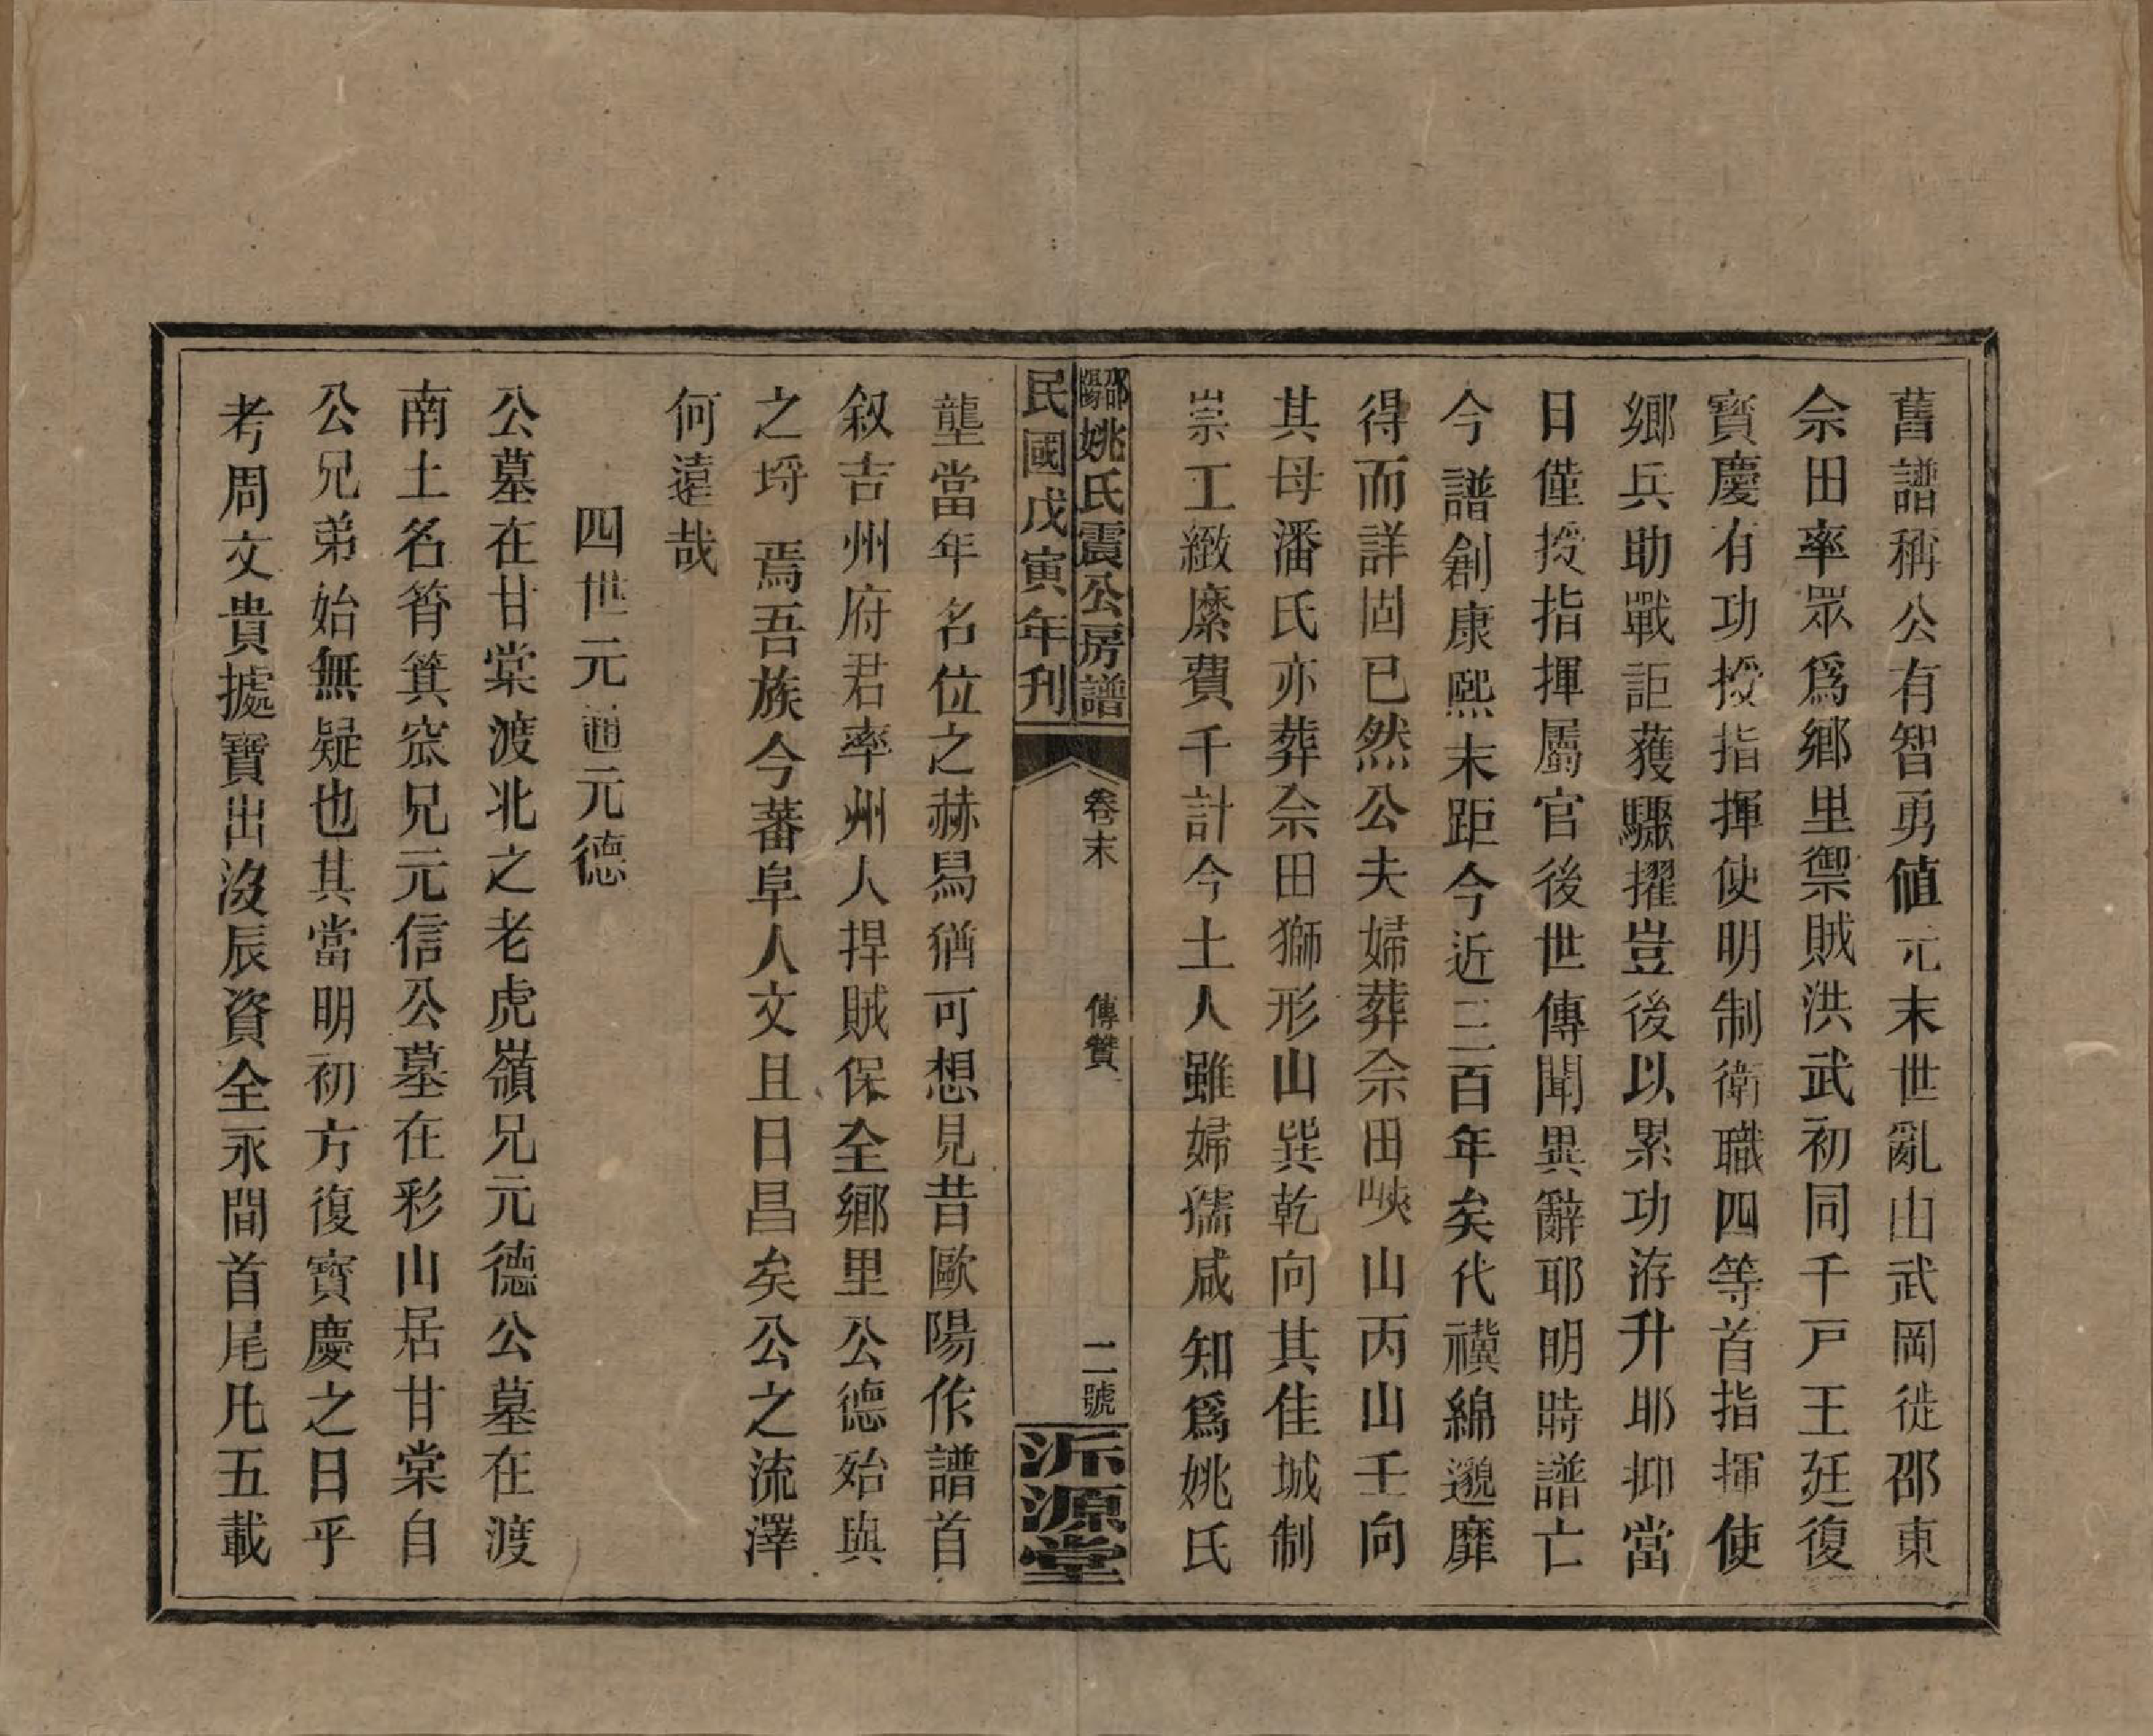 舊譜稱公有智勇值元末世亂由武岡徙邵東
佘田率眾爲鄉里禦賊洪武初同千戸王廷復
寳慶有功授指揮使明制衛職四等首指揮使
鄉兵助戰詎獲驟擢豈後以累功洊升耶抑當
日僅授指揮屬官後世傳聞異辭耶明時譜亡
今譜創康熙末距今近三百年矣代禩綿邈靡
得而詳固已然公夫婦葬佘田峽山丙山壬向
其母潘氏亦葬佘田獅形山巽乾向其佳城制
崇工緻縻費千計今土人雖婦孺咸知爲姚氏
邵陽姚氏震公房譜
民國戊寅年刊
卷末
傳贊
二號
派源堂
壟當年名位之赫舄猶可想見昔歐陽作譜首
叙吉州府君率州人捍賊保全鄉里公德殆與
之埒焉吾族今蕃阜人文且日昌矣公之流澤
何遠哉
四世元通元德
公墓在甘棠渡北之老虎嶺兄元德公墓在渡
南土名筲箕窊兄元信公墓在彩山居甘棠自
公兄弟始無疑也其當明初方復寳慶之日乎
考周文貴據寶出沒辰資全永間首尾凡五載